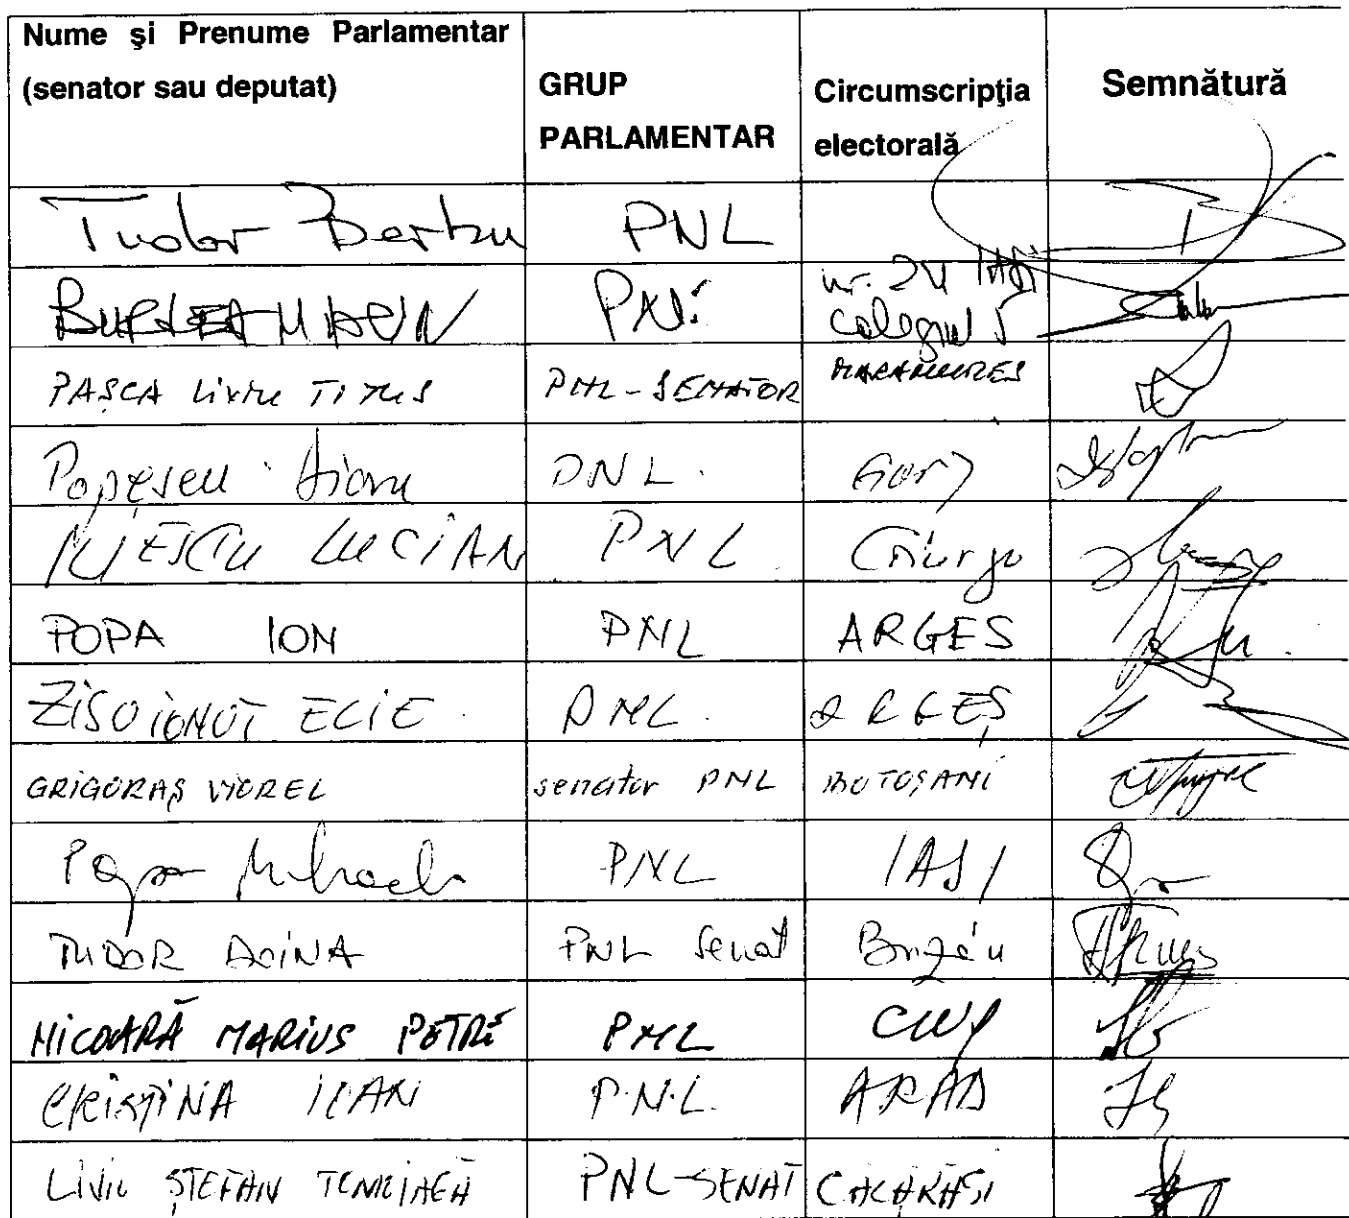 Nume și Prenume Parlamentar (senator sau deputat) GRUP PARLAMENTAR Circumscripţia electorală Semnătură
Tudor Barbu PNL
BURLEA MARIN PNL nr. 24 IAȘI colegiul 5
PAȘCA Liviu TITUS PNL - SENATOR MARAMURES
Popescu PNL. Gorj
ILIESCU LUCIAN PNL Giurgiu
POPA ION PNL ARGES
ZISU IONUȚ ELIE PNL. ARGEȘ
GRIGORAȘ VIOREL senator PNL BOTOȘANI
Popa Mihaela PNL IASI
TUDOR DOINA PNL Senat Buzău
NICOARĂ MARIUS PETRE PNL CLUJ
CRISTINA P.N.L. ARAD
LIVIU ȘTEFAN PNL-SENAT CALARASI